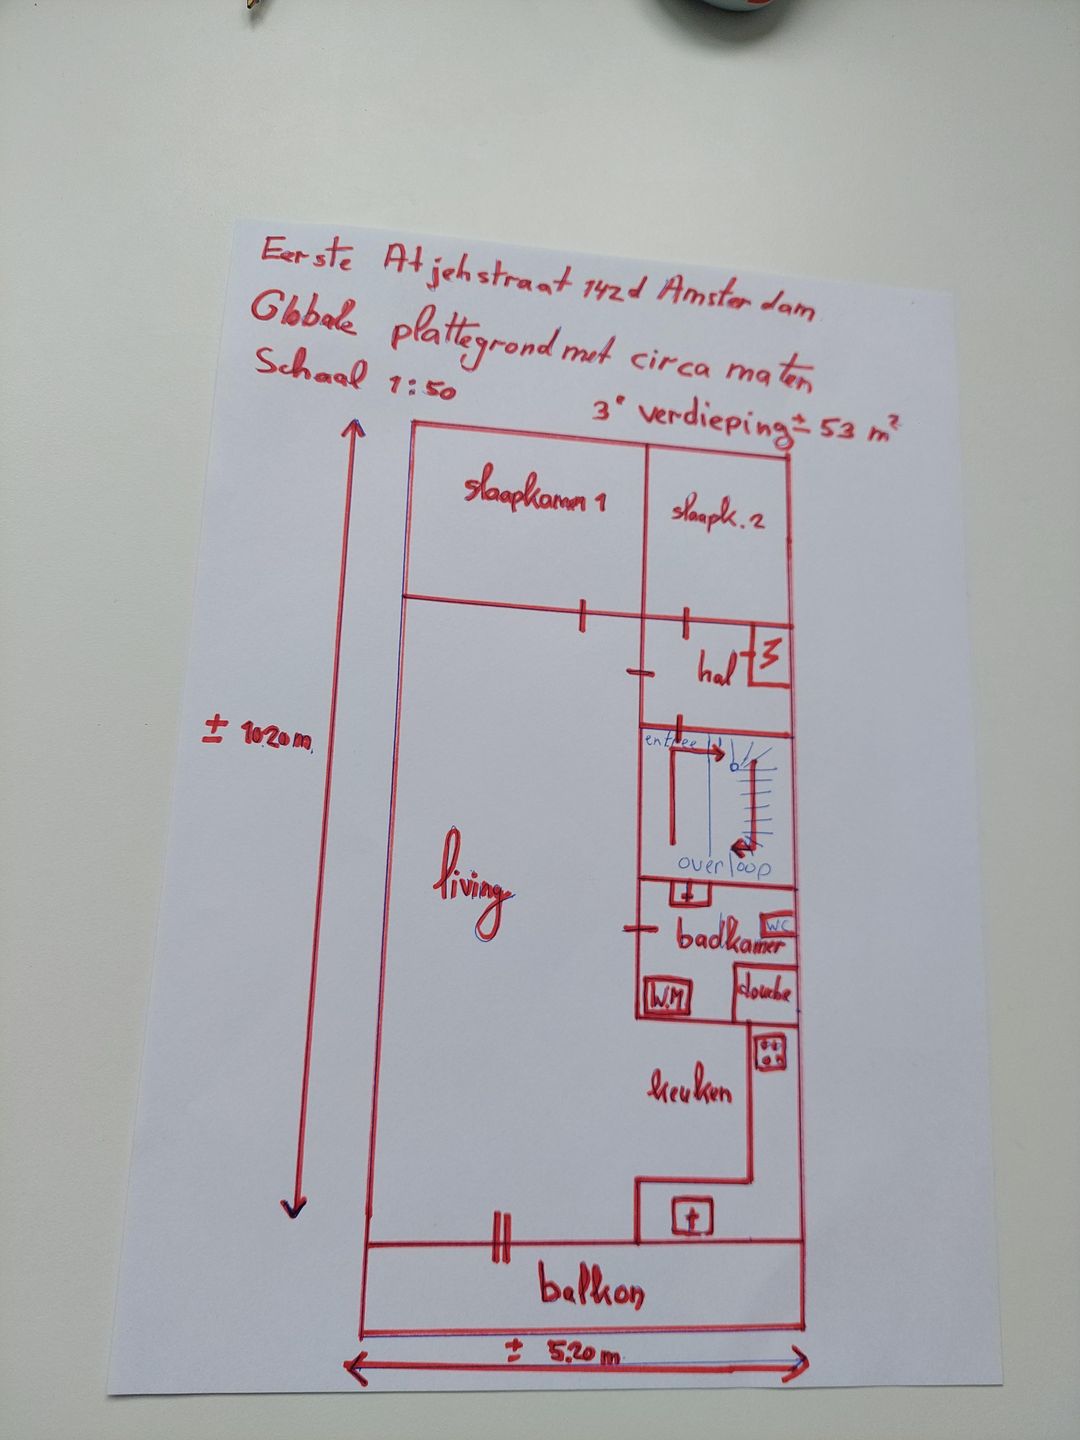 Eerste Atjehstraat 142d Amsterdam
Globale plattegrond met circa maten
Schaal 1:50
3e verdieping ± 53 m²
slaapkamer 1
slaapk. 2
hal
± 10.20 m
entree
living
overloop
badkamer
WC
W.M
douche
keuken
balkon
± 5.20 m